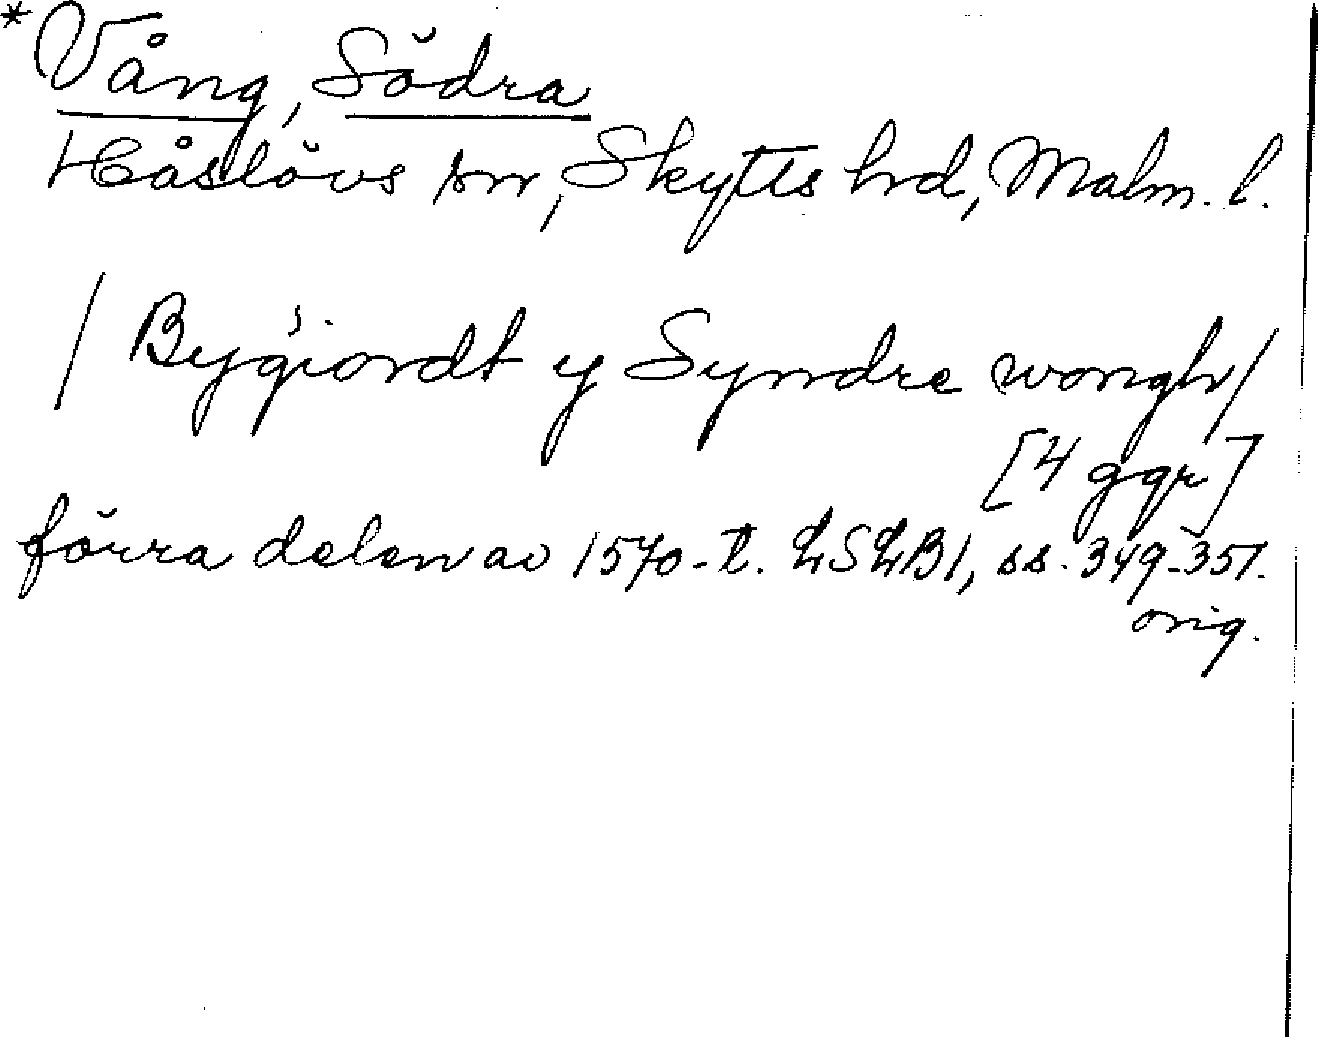 *Vång, Södra
Håslövs sn, Skytts hd, Malm. l.
/ Bygiordt y Syndre wongh /
[4 ggr]
förra delen av 1570-t. LSLB1, ss. 349-351.
orig.